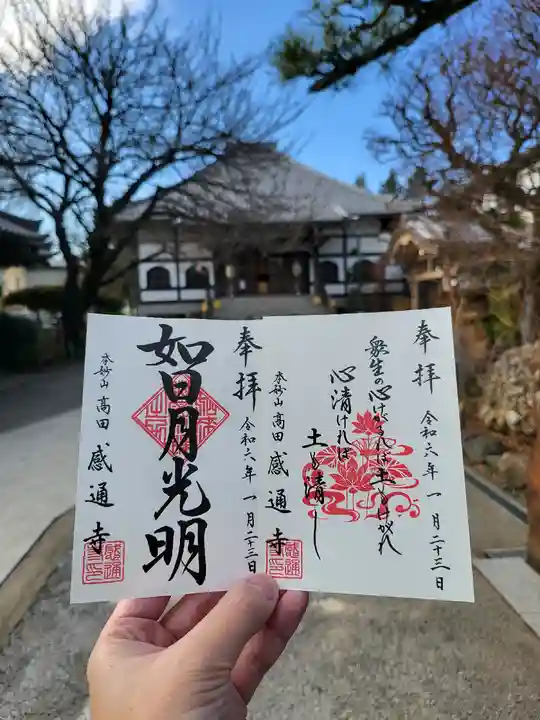 奉拝
令和六年一月二十三日
衆生の心けがるれば土もけがれ
心清ければ
土も清し
本妙山
高田
感通寺
奉拝
令和六年一月二十三日
如日月光明
本妙山
高田
感通寺